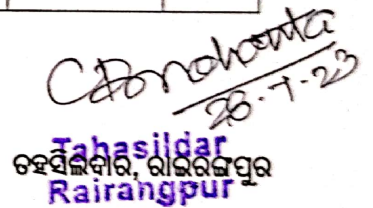 26.7.23
Tahasildar
ତହସିଲଦାର, ରାଇରଙ୍ଗପୁର
Rairangpur